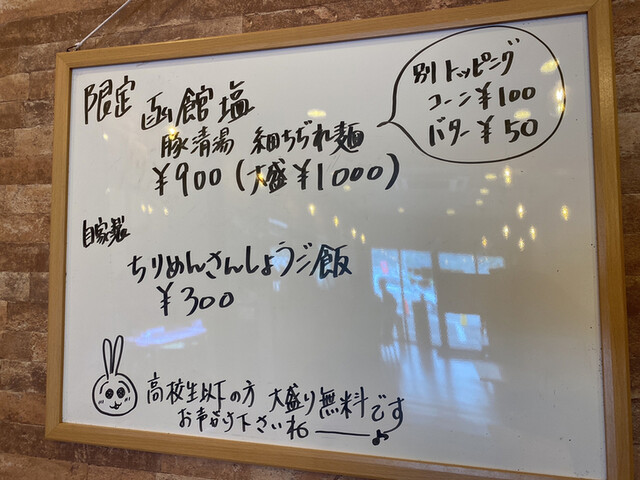 限定 函館塩
豚清湯 細ちぢれ麺
¥900(大盛¥1000)
別トッピング
コーン¥100
バター¥50
自家製
ちりめんさんしょうジ飯
¥300
高校生以下の方 大盛り無料です
お声がけ下さいね